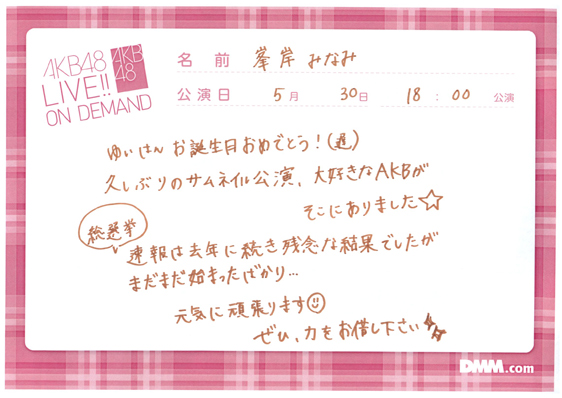 AKB48
LIVE!!
ON DEMAND
AKB
48
名前 峯岸みなみ
公演日 5月 30日 18:00 公演
ゆいはん お誕生日おめでとう!(遅)
久しぶりのサムネイル公演、大好きなAKBが
そこにありました☆
総選挙
速報は去年に続き残念な結果でしたが
まだまだ始まったばかり...
元気に頑張ります☺
ぜひ、力をお借し下さい
DMM.com